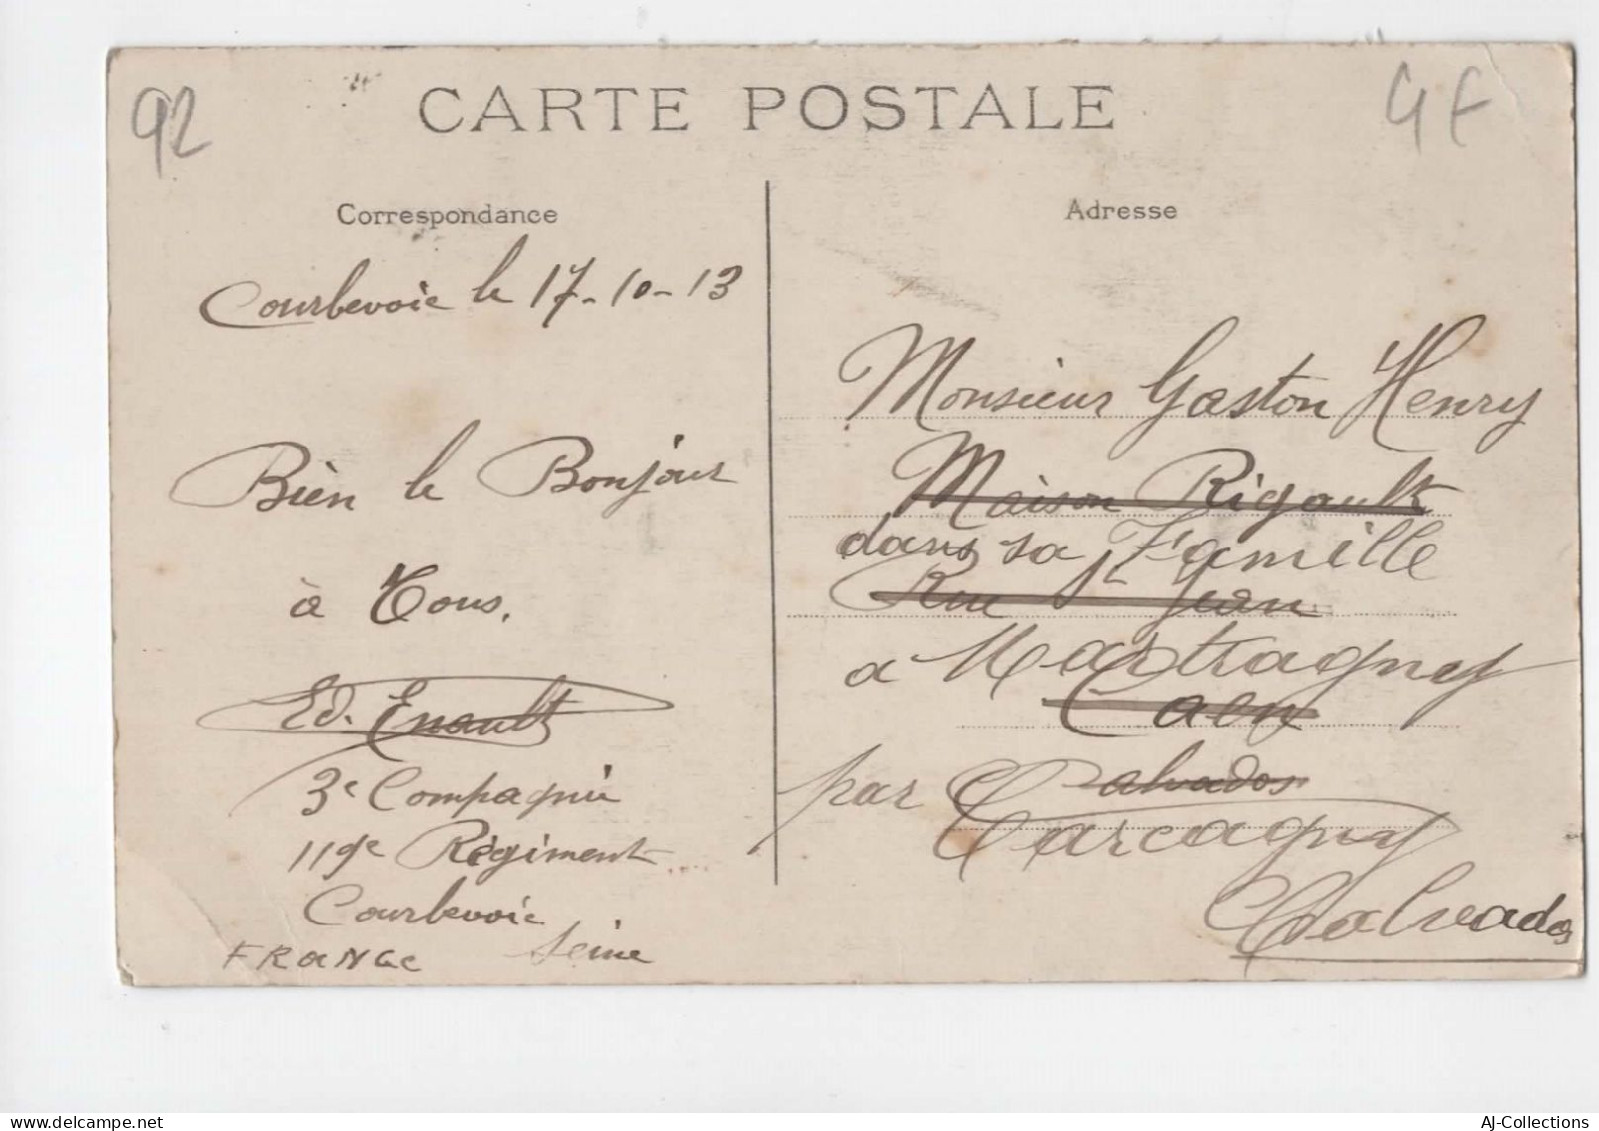 92
4 F
CARTE POSTALE
Correspondance
Courbevoie le 17-10-13
Bien le Bonjour
à Tous.
Ed. Enault
3e Compagnie
119e Régiment
Courbevoie
Seine
FRANCE
Adresse
Monsieur Gaston Henry
Maison Rigault
dans sa Famille
Rue St Jean
a Martragny
Caen
Calvados
par Carcagny
Calvados
AJ-Collections